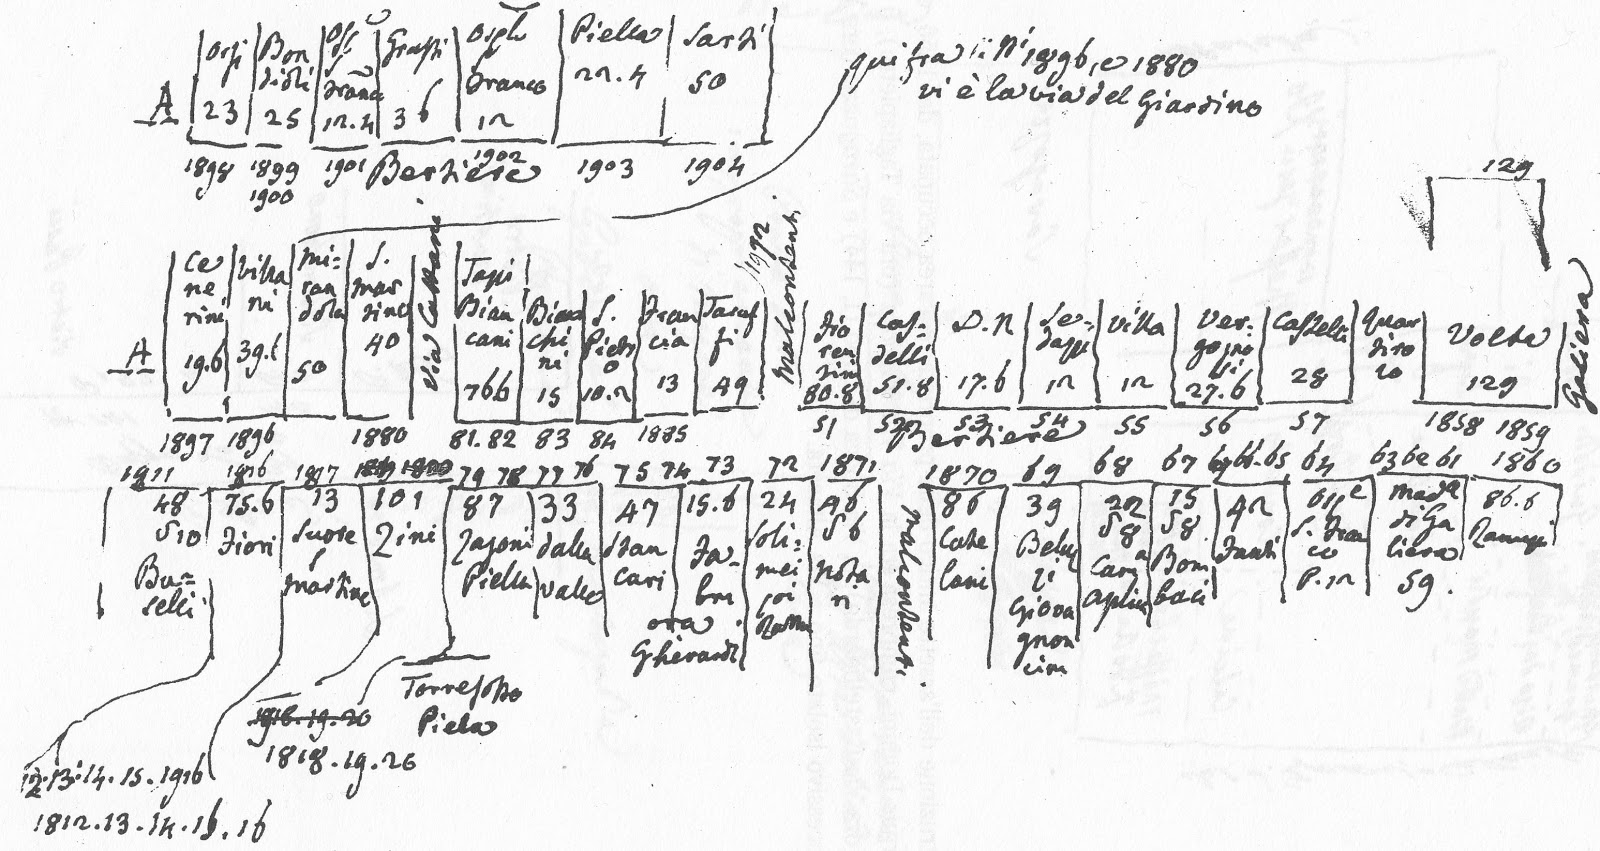 A
Orsi
23
Bon
sioli
25
S
Franco
12.4
Grassi
36
Osple
S
Franco
12
Piella
22.4
Sarti
50
1898
1899
1900
1901
Bertiere
1902
1903
1904
qui fra li Ni 1896, e 1880
vi è la via del Giardino
129
A
Ce
ne
rini
19.6
Villa
ni
39.6
Mi-
ran
dola
50
S.
Mar
tino
40
Via Cattani
Tapi
Bian
cani
766
Bian
chi
ni
15
S.
Pietro
10.2
Fran
cia
13
Taruf
fi
49
1872
Malcontenti
Fio
ren
tini
80.8
Cas-
telli
51.8
D.N
17.6
12
Villa
12
Ver-
gogno
si
27.6
Castelli
28
Quar
tiro
lo
Volta
129
Galiera
1897
1896
1880
81.82
83
84
1885
51
52
Bertiere
53
54
55
56
57
1858
1859
1911
1916
1917
79 78
77 76
75 74
73
72
1871
1870
69
68
67
66.65
64
63 62 61
1860
48
510
Bo-
selli
75.6
Fiori
13
Suore
S
Martino
101
Zini
87
Zagoni
Piella
33
Dalla
Valle
47
Stan
cari
15.6
Fa-
bri
ora
Gherardi
24
Soli-
mei
poi
46
56
Nota
ri
Malcontenti
86
Cate
lani
39
Bel
Giova
gnon
cini
58
15
58
Bom
baci
42
Fanti
Ospe
S. Fran
co
P. 12
Made
di Ga
liera
59.
86.6
Ranuzzi
Torresotto
Piella
1918.19.20
1818.19.20
12.13.14.15.1916
1812.13.14.15.16